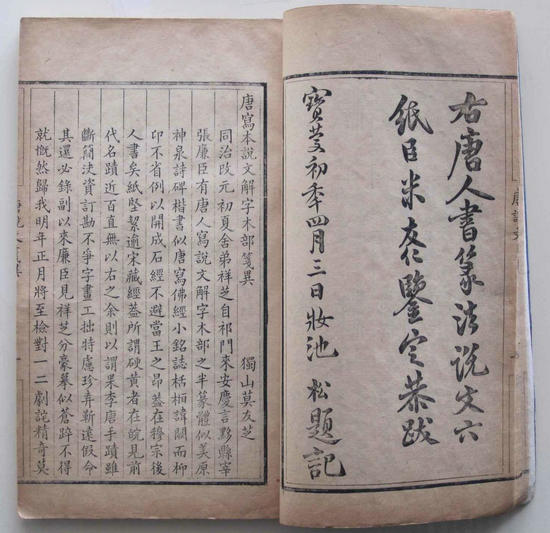 右唐人書篆法説文六
紙臣米友仁鑒定恭跋
寶慶初秊四月三日妝池 松題記
唐寫本説文解字木部箋異
獨山莫友芝
同治改元初夏舍弟祥芝自祁門來安慶言黟縣宰
張廉臣有唐人寫説文解字木部之半篆體似美原
神泉詩碑楷書似唐寫佛經小銘誌栝桓諱闕而柳
卯不省例以開成石經不避當王之昂蓋在穆宗後
人書矣紙堅絜逾宋藏經蓋所謂硬黃者在皖見前
代名蹟近百直無以右之余則以謂果李唐手蹟雖
斷簡決資訂勘不爭字畫工拙特慮珍弆靳遠假命
其還必錄副以來廉臣見祥芝分豪摹似蒼踤不得
就慨然歸我明年正月將至檢對一二劇詫精奇莫